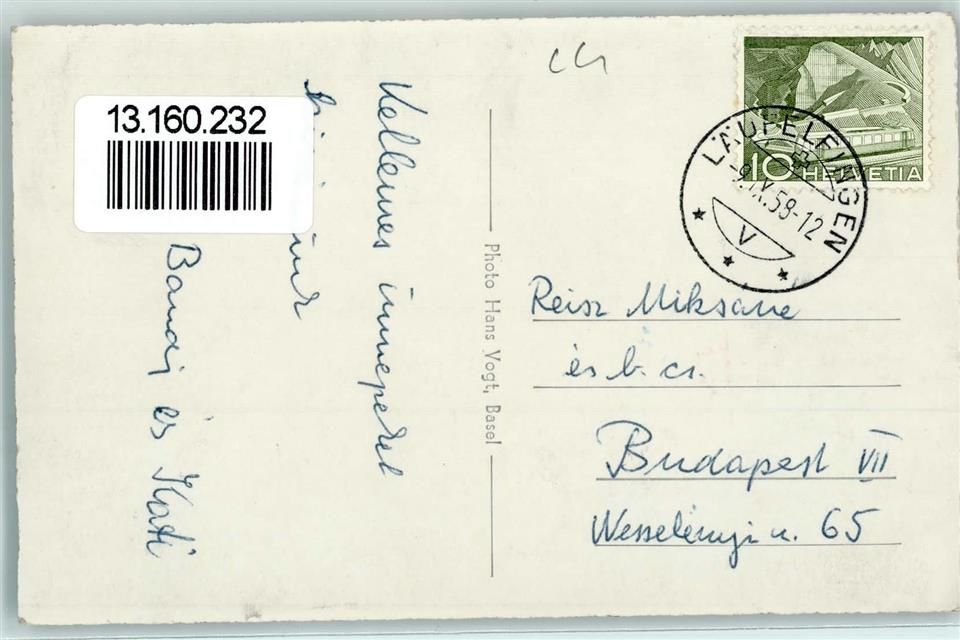 13.160.232
Kellemes ünnepeket
Bandi és Kati
Photo Hans Vogt, Basel
10 HELVETIA
LÄUFELFINGEN
-9.IX.58-12
V
Reisz Miksane
és b. cs.
Budapest VII
Wesselényi u. 65